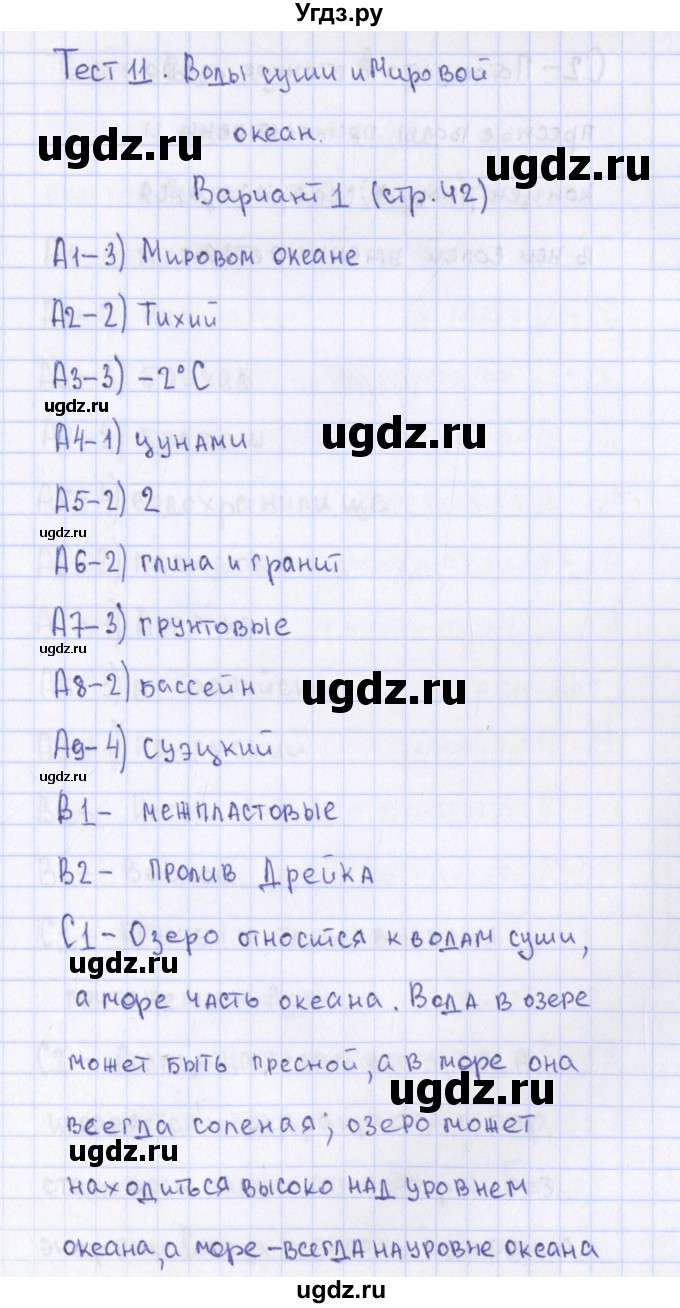 Угдз.ру
Тест 11. Воды суши и Мировой
океан.
ugdz.ru
ugdz.ru
Вариант 1 (стр. 42)
А1-3) Мировом океане
А2-2) Тихий
А3-3) -2°С
ugdz.ru
А4-1) цунами
ugdz.ru
А5-2) 2
ugdz.ru
А6-2) глина и гранит
А7-3) грунтовые
ugdz.ru
А8-2) бассейн
ugdz.ru
А9-4) Суэцкий
ugdz.ru
В1- межпластовые
В2- пролив Дрейка
С1- Озеро относится к водам суши,
ugdz.ru
а море часть океана. Вода в озере
может быть пресной, а в море она
ugdz.ru
всегда соленая; озеро может
ugdz.ru
находиться высоко над уровнем
океана, а море - всегда на уровне океана
ugdz.ru